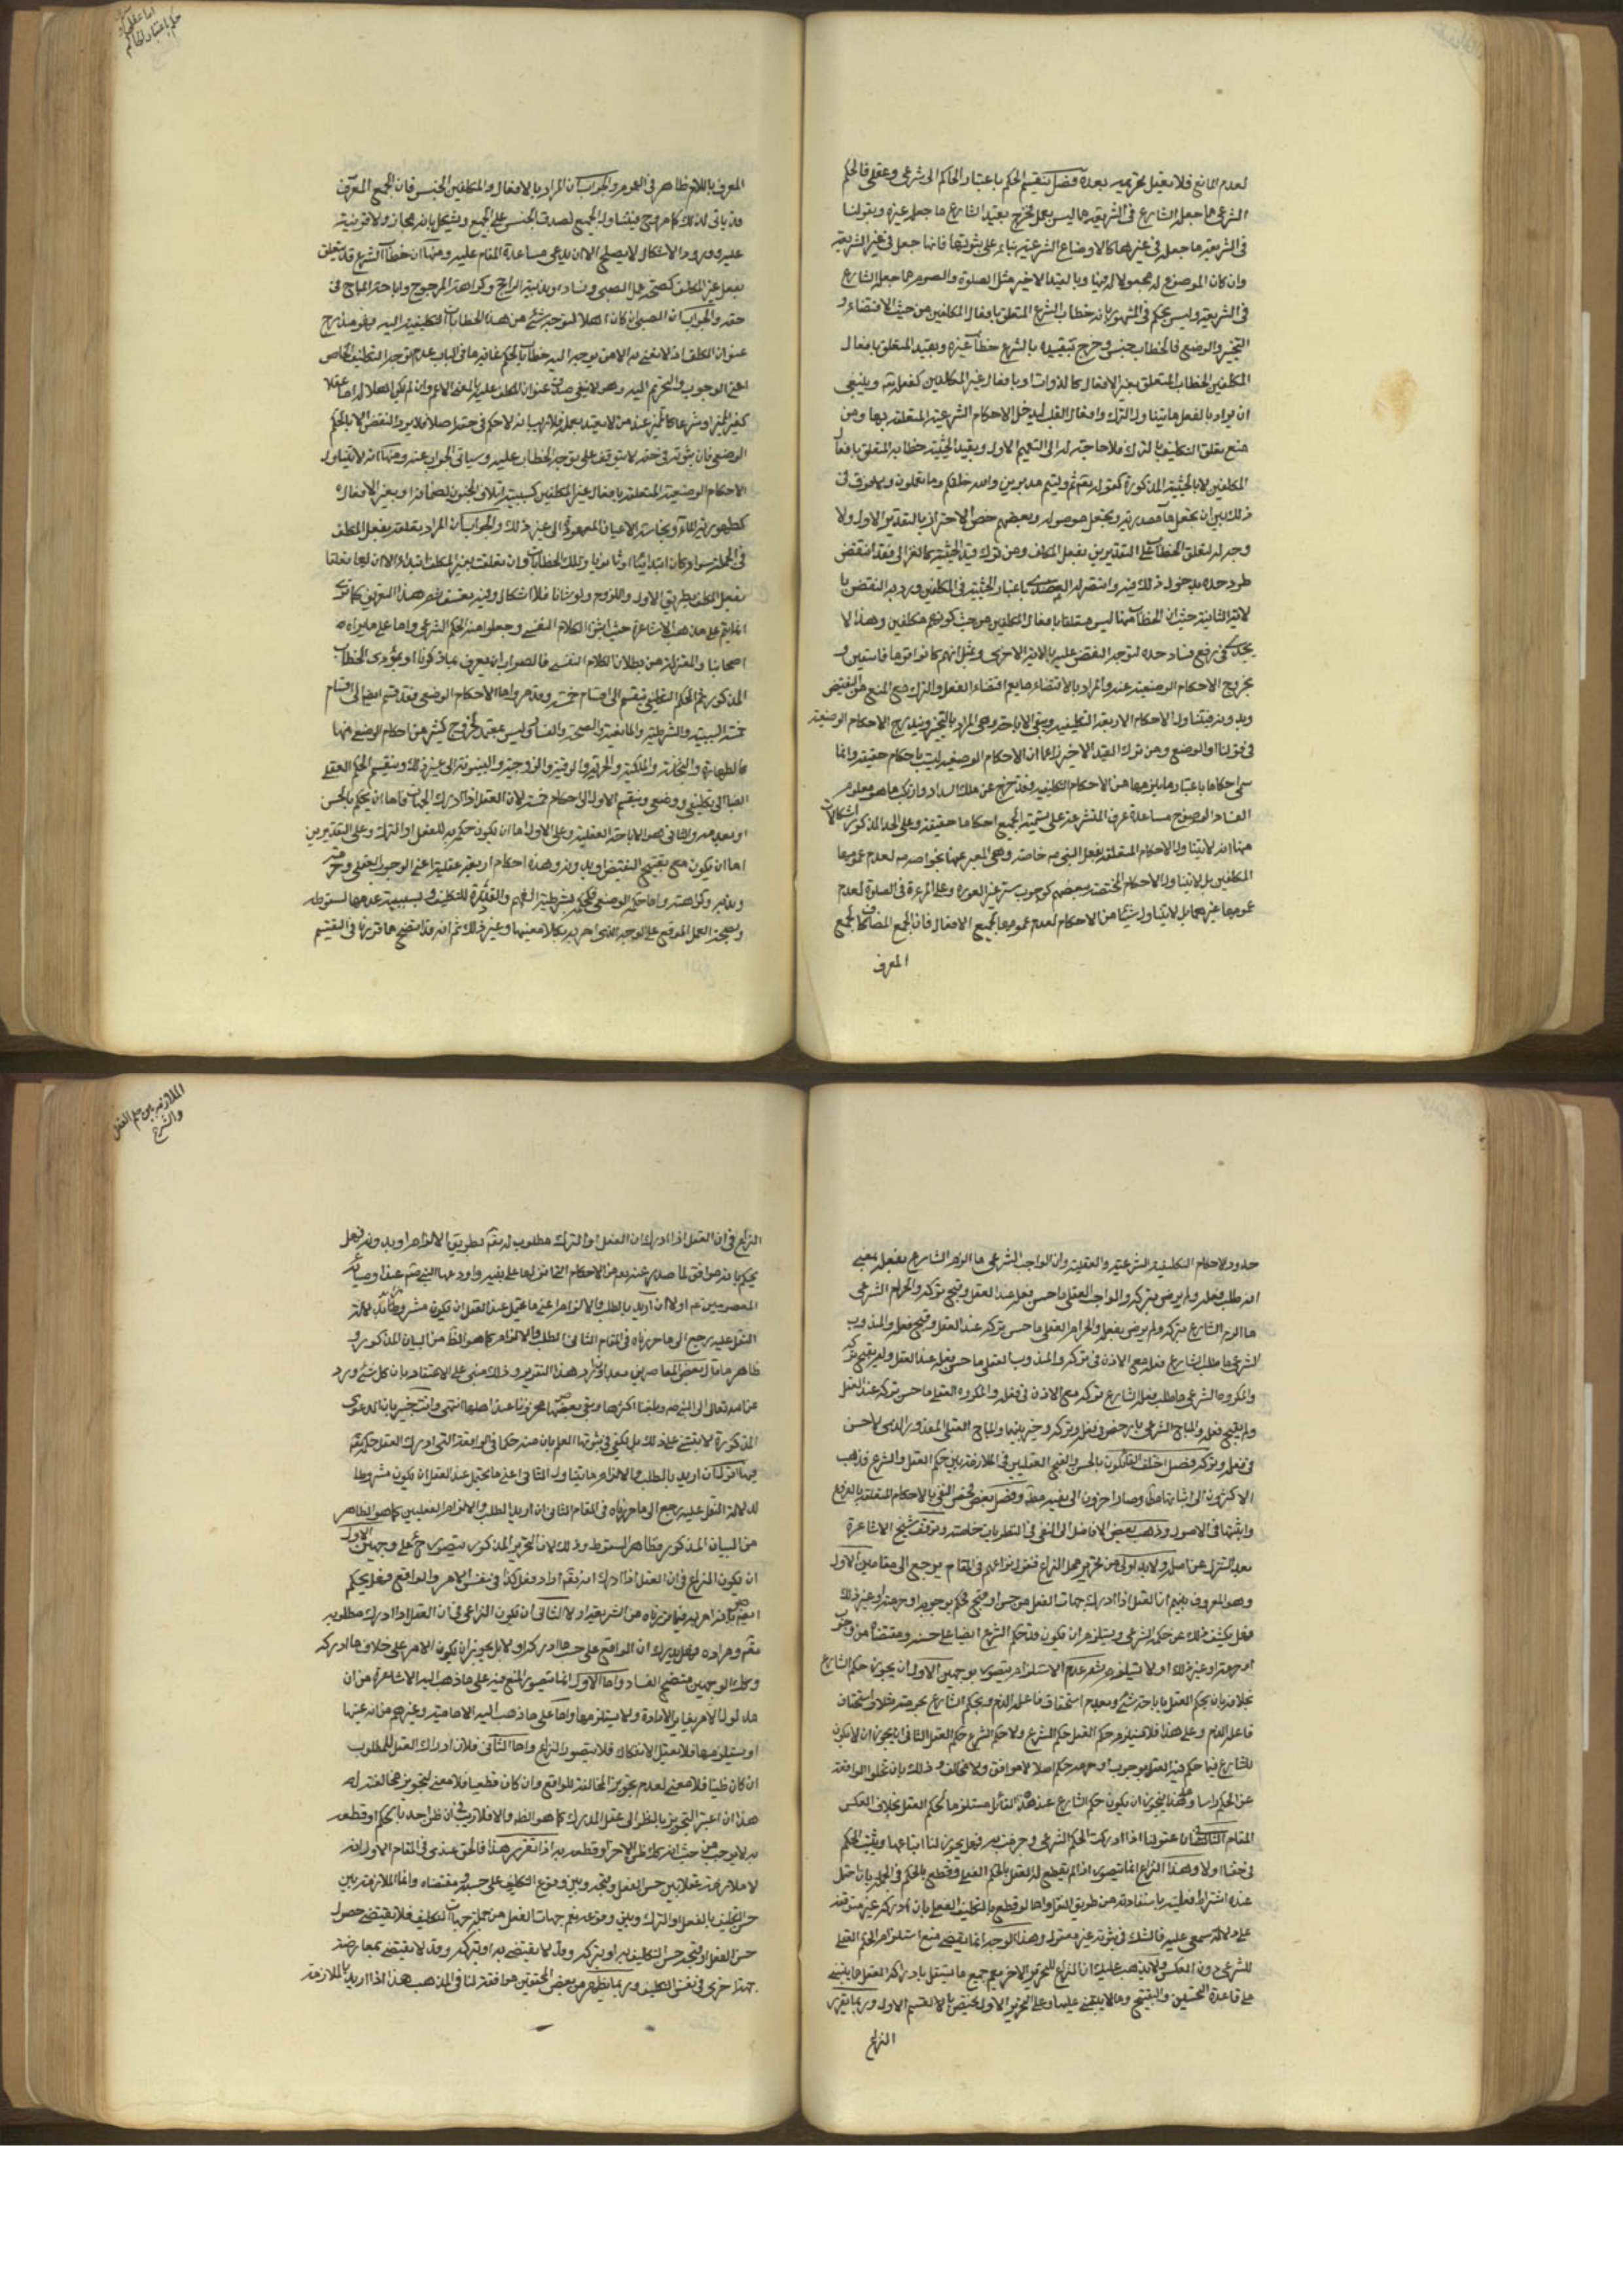 لعدم المانع فلا يعقل تحريمه بعده فصل ينقسم الحكم باعتبار الحاكم الى شرعي وعقلي فالحكم
الشرعي ما جعله الشارع في الشريعة مما ليس بعمل فخرج بقيد الشارع ما جعله غيره وبقولنا
في الشريعة ما جعله في غيرها كالاوضاع الشرعية بناء على ثبوتها فانها جعل في غير الشريعة
وان كان الموضوع له مجعولا له فيها وبالقيد الاخير مثل الصلوة والصوم مما جعله الشارع
في الشريعة وليس بحكم في المشهور بانه خطاب الشرع المتعلق بافعال المكلفين من حيث الاقتضاء و
التخيير والوضع فالخطاب جنس وخرج بتقييده بالشرع خطاب غيره وبقيد المتعلق بافعال
المكلفين الخطاب المتعلق بغير الافعال كالذوات او بافعال غير المكلفين كفعله تعه وينبغي
ان يراد بالفعل ما يتناول الترك وافعال القلب ليدخل الاحكام الشرعية المتعلقة بها ومن
منع تعلق التكليف بالترك فلا حاجة له الى التعميم الاول وبقيد الحيثية خطابه المتعلق بافعال
المكلفين لا بالحيثية المذكورة كقوله تعه ثم وليتم مدبرين والله خلقكم وما تعملون ولا فرق في
ذلك بين ان يجعل ما مصدرية ويجعل موصوله وبعضهم خص الاحتراز بالتقدير الاول ولا
وجه له لتعلق الخطاب على التقديرين بفعل المكلف ومن ترك قيد الحيثية كالغزالي فقد انتقض
طرد حده بدخول ذلك فيه وانتصر له العضدي باعتبار الحيثية في المكلفين ورد به النقض با
لاية الثانية حيث ان الخطاب فيها ليس متعلقا بافعال المكلفين من حيث كونهم مكلفين وهذا لا
يجدي في رفع فساد حده لتوجه النقض عليه بالاية الاخرى وبمثل انهم كانوا قوما فاسقين و
بخروج الاحكام الوضعية عنه والمراد بالاقتضاء ما يعم اقتضاء الفعل والترك مع المنع من النقيض
وبدونه فيتناول الاحكام الاربعة التكليفية ويبقى الاباحة وهي المراد بالتخيير ويندرج الاحكام الوضعية
في قولنا او الوضع ومن ترك القيد الاخير زاعما ان الاحكام الوضعية ليست باحكام حقيقة وانما
سمي احكاما باعتبار ما يلزمها من الاحكام التكليفية فقد خرج عن ملك السداد وارتكب ما هو معلوم
الفساد لوضوح مساعدة عرف المتشرعة على تسمية الجميع احكاما حقيقة وعلى الحد المذكور اشكالات
منها انه لا يتناول الاحكام المتعلقة بفعل النبي ص خاصة وهي المعبر عنها بخواصه ص لعدم عمومها
المكلفين بل لا يتناول الاحكام المختصة ببعضهم كوجوب ستر غير العورة وعلى المرءة في الصلوة لعدم
عمومها غيرهما بل لا يتناول شيئا من الاحكام لعدم عمومها لجميع الافعال فان الجمع المضاف كالجمع
المعرف
اما عقلي او
حكم باعتبار الحاكم
المعرف باللام ظاهر في العموم والجواب ان المراد بالافعال والمكلفين الجنس فان الجمع المعرف
قد ياتي لذلك كما مر وح فيتناول الجميع لصدق الجنس على الجميع ويشكل بانه مجاز ولا قرينة
عليه وورود الاشكال لا يصلح الا ان يدعى مساعدة المقام عليه ومنها ان خطاب الشرع قد يتعلق
بفعل غير المكلف كصحة عمل الصبي وفساده وندبية الراجح وكراهة المرجوح واباحة المباح في
حقه والجواب ان الصبي ان كان اهلا لتوجه شئ من هذا الخطابات التكليفية اليه فهو مندرج
عنوان المكلف اذ لا نعني به الا من يوجه اليه خطاب بالحكم غاية ما في الباب عدم توجه التكليف الخاص
اعني الوجوب والتحريم اليه وهو لا ينفي صدق عنوان المكلف عليه بالمعنى الاعم وان لم يكن اهلا له اما عقلا
كغير المميز او شرعا كالمميز عند من لا يعتد بعمله فلا ريب انه لا حكم في حقه اصلا فلا يرد النقض الا بالحكم
الوضعي فان ثبوته في حقه لا يتوقف على توجه الخطاب عليه وسياتي الجواب عنه ومنها انه لا يتناول
الاحكام الوضعية المتعلقة بافعال غير المكلفين كسببية اتلاف المجنون لضمانه او بغير الافعال
كطهورية الماء ونجاسة الاعيان المعهودة الى غير ذلك والجواب ان المراد تعلقه بفعل المكلف
في الجملة سواء كان ابتدائيا او ثانويا وتلك الخطابات وان تعلقت بغير المكلف ابتداء الا ان لها تعلقا
بفعل المكلف بطريق الاول واللزوم ولو ثانيا فلا اشكال وفيه تعسف ثم هذا التعريف كما ترى
انما يتم على مذهب الاشاعرة حيث اثبتوا الكلام النفسي وجعلوا منه الحكم الشرعي واما على ما يراه
اصحابنا والمعتزلة من بطلان الكلام النفسي فالصواب ان يعرف بما ذكرنا او بمؤدى الخطاب
المذكور ثم الحكم التكليفي ينقسم الى اقسام خمسة وقد مر واما الاحكام الوضعي فقد قسم ايضا الى اقسام
خمسة السببية والشرطية والمانعية والصحة والفساد وليس بمعتمد لخروج كثير من احكام الوضع منها
كالطهارة والنجاسة والملكية والحرية والرقية والزوجية والبينونة الى غير ذلك وينقسم الحكم العقلي
ايضا الى تكليفي ووضعي وينقسم الاول الى احكام خمسة لان العقل اذا ادرك الجهات فاما ان يحكم بالحسن
او بعدمه والثاني هو الاباحة العقلية وعلى الاول اما ان يكون حكمه به للفعل او الترك وعلى التقديرين
اما ان يكون مع تقبيح النقيض او بدونه وهذه احكام اربعة عقلية اعني الوجوب العقلي وحرمته
وندبه وكراهته واما حكمه الوضعي فكحكمه بشرطية الفهم والقدرة للتكليف وبسببية عدمها لسقوطه
وبصحة العمل الموقع على الوجه الذي امر به بكلا معنييها وغير ذلك ثم انه قد اتضح مما قررنا في التقسيم
حدود الاحكام التكليفية الشرعية والعقلية وان الواجب الشرعي ما الزم الشارع بفعله بمعنى
انه طلب فعله ولم يرض بتركه والواجب العقلي ما حسن فعله عند العقل وقبح تركه والحرام الشرعي
ما الزم الشارع بتركه ولم يرض بفعله والحرام العقلي ما حسن تركه عند العقل وقبح فعله والمندوب
الشرعي ما طلب الشارع فعله مع الاذن في تركه والمندوب العقلي ما حسن فعله عند العقل ولم يقبح تركه
والمكروه الشرعي ما طلب الشارع تركه مع الاذن في فعله والمكروه العقلي ما حسن تركه عند العقل
ولم يقبح فعله والمباح الشرعي ما رخص في فعله وتركه وخير بينهما والمباح العقلي المقدور الذي لا حسن
في فعله وتركه فصل اختلف القائلون بالحسن والقبح العقليين في الملازمة بين حكم العقل والشرع فذهب
الاكثرون الى اثباتها مطلقا وصار اخرون الى نفيها كك وفصل بعض فخص النفي بالاحكام المتعلقة بالفروع
واثبتها في الاصول وذهب بعض الافاضل الى النفي في النظريات خاصة وتوقف شيخ الاشاعرة
بعد التنزل عن اصله ولا بد اولا من تحرير محل النزاع فنقول نزاعهم في المقام يرجع الى مقامين الاول
وهو المعروف بينهم ان العقل اذا ادرك جهات الفعل من حسن او قبح فحكم بوجوبه او حرمته او غير ذلك
فهل يكشف ذلك عن حكمه الشرعي ويستلزم ان يكون قد حكم الشرع ايضا على حسبه ومقتضاه من وجوب
او حرمة او غير ذلك او لا يستلزم ثم عدم الاستلزام يتصور بوجهين الاول ان يجوز حكم الشارع
بخلافه بان يحكم العقل باباحة شئ وبعدم استحقاق فاعله الذم ويحكم الشارع بحرمته وخلاف استحقاق
فاعله الذم وعلى هذا فلا يستلزم حكم العقل حكم الشرع ولا حكم الشرع حكم العقل الثاني ان يجوز ان لا يكون
للشارع فيما حكم فيه العقل بوجوب او حرمة حكم اصلا لا موافق ولا مخالف وذلك بان تخلو الواقعة
عن الحكم راسا وعلى هذا فيجوز ان يكون حكم الشارع عند هذا القائل مستلزما لحكم العقل بخلاف العكس
المقام الثاني ان عقولنا اذا ادركت الحكم الشرعي وجزمت به فهل يجوز لنا اتباعها ويثبت الحكم
في حقنا او لا وهذا النزاع انما يتصور اذا لم يقطع له العقل بالحكم الفعلي وقطع بالحكم في الجملة بان احتمل
عنده اشتراط فعليته باستفادته من طريق النقل واما لو قطع بالتكليف الفعلي بان ادركه غير متوقف
على دلالة سمعي عليه فالشك في ثبوته غير معقول وهذا الوجه انما يقتضي منع استلزام الحكم العقلي
للشرعي دون العكس ولا يذهب عليك ان النزاع للتحرير الاخر يعم جميع ما يستقل بادراكه العقل ما يبتني
على قاعدة التحسين والتقبيح وما لا يبتني عليها وعلى التحرير الاول يختص بالقسم الاول وربما يقرر
النزاع
الملازمه بين حكم العقل
والشرع
النزاع في ان العقل اذا ادرك ان الفعل او الترك مطلوب له تعه بطريق الالزام او بدونه فهل
يحكم بانه موافق لما صدر عنه تعه من الاحكام التي انزلها على نبيه واودعها النبي ص عند اوصيائه
المعصومين ع او لا ان اريد بالطلب والالزام اعني ما يحتمل عند العقل ان يكون مشروطا بدلالة
النقل عليه يرجع الى ما حررناه في المقام الثاني الطلب والالزام كما هو الظاهر من البيان المذكور و
ظاهر ما قال بعض المعاصرين بعد ان اورد هذا التقرير وذلك مبني على الاعتقاد بان كل شئ ورد
عن الله تعالى الى النبي ص وبلغنا اكثرها وبقي بعضها مخزونا عند اهلها انتهى وانت خبير بان الدعوى
المذكورة لا يبتني على ذلك بل يكفي في ثبوتها العلم بان صدر حكما في الواقعة التي ادرك العقل حكمه تعه
فيها اقول ان اريد بالطلب والالزام ما يتناول الثاني اعني ما يحتمل عند العقل ان يكون مشروطا
لدلالة النقل عليه يرجع الى ما حررناه في المقام الثاني ان اريد الطلب والالزام الفعليين كما هو الظاهر
من البيان المذكور فظاهر السقوط وذلك لان التحرير المذكور يتصور ح على وجهين الاول
ان يكون النزاع في ان العقل اذا ادرك انه تعه اراد فعل كذا في نفس الامر والواقع فهل يحكم
ايضا بانه امر به فيما قررناه من الشريعة او لا الثاني ان يكون النزاع في ان العقل اذا ادرك مطلوبه
تعه ومراده فهل يدرك ان الواقع على حسب ما ادركه او لا بل يجوز ان يكون الامر على خلاف ما ادركه
وكلا الوجهين متضح الفساد واما الاول انما يتصور المنع فيه على ما ذهب اليه الاشاعرة من ان
مدلول الامر يغاير الارادة ولا يستلزمها واما على ما ذهب اليه الامامية وغيرهم من انه عينها
او يستلزمها فلا يعقل الانفكاك فلا يتصور النزاع واما الثاني فلان ادراك العقل للمطلوب
ان كان ظنيا فلا معنى لعدم تجويز المخالفة للواقع وان كان قطعيا فلا معنى لتجويز مخالفته له
هذا ان اعتبر التجويز بالنظر الى عقل المدرك كما هو الظاهر والا فلا ريب في ان ظن احد بالحكم او قطعه
به لا يوجب من حيث انه كك ظن الاخر او قطعه به اذا تقرر هذا فالحق عندي في المقام الاول انه
لا ملازمة عقلا بين حسن الفعل وقبحه وبين وقوع التكليف على حسبه ومقتضاه وانما الملازمة بين
حسن التكليف بالفعل او الترك وبين وقوعه نعم جهات الفعل من جملة جهات التكليف فلا يقتضي حصول
حسن الفعل او قبحه حسن التكليف به او بتركه وقد لا يقتضي به او بتركه وقد لا يقتضي بمعارضة
جهة اخرى في نفس التكليف وربما يظهر من بعض المحققين موافقته لنا في المذهب هذا اذا اريد بالملازمة